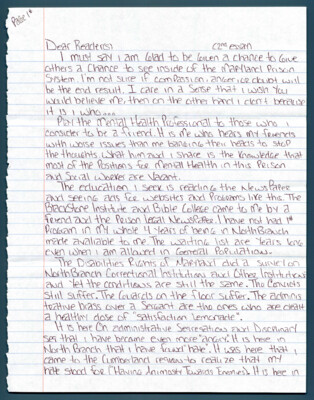 Page 1
Dear Readers: (2nd exam
I must say I am Glad to be Given a chance to Give
others a Chance to see inside of the Maryland Prison
System. I'm not sure if compassion, anger or doubt will
be the end result. I care in a Sense that I wish You
would believe me, then on the other hand I don't because
it is I who...
Play the Mental Health Professional to those who I
consider to be a friend. It is me who hears my friends
with worse issues than me banging their heads to stop
the thoughts. What him and I share is the knowledge that
most of the Positions for Mental Health in this Prison
and Social Worker are Vacant.
The education I seek is reading the NewsPaper
and seeing ads for websites and Programs like this. The
Blackstone Institute and Bible College came to me by a
friend and the Prison Legal NewsPaper. I have not had 1
Program in my whole 4 Years of being in North Branch
made available to me. The waiting list are Years long
even when I am allowed in General Populations.
The Disabilities Rights of Maryland did a survey on
North Branch Correctional Institutions and Other Institutions
and Yet the conditions are still the same. The Convicts
still Suffer. The Convicts on the floor suffer. The adminis
trative brass over a Servant are the ones who are
a healthy dose of "Satisfaction Lemonade".
It is here on administrative Segregations and Disciplinary
Seg that I have became even more "angry." It is here in
North Branch that I have found "hate". It was here that I
came to the Cumberland regions to realize that my
hate stood for (Having Animosity Towards Enemies). It is here in